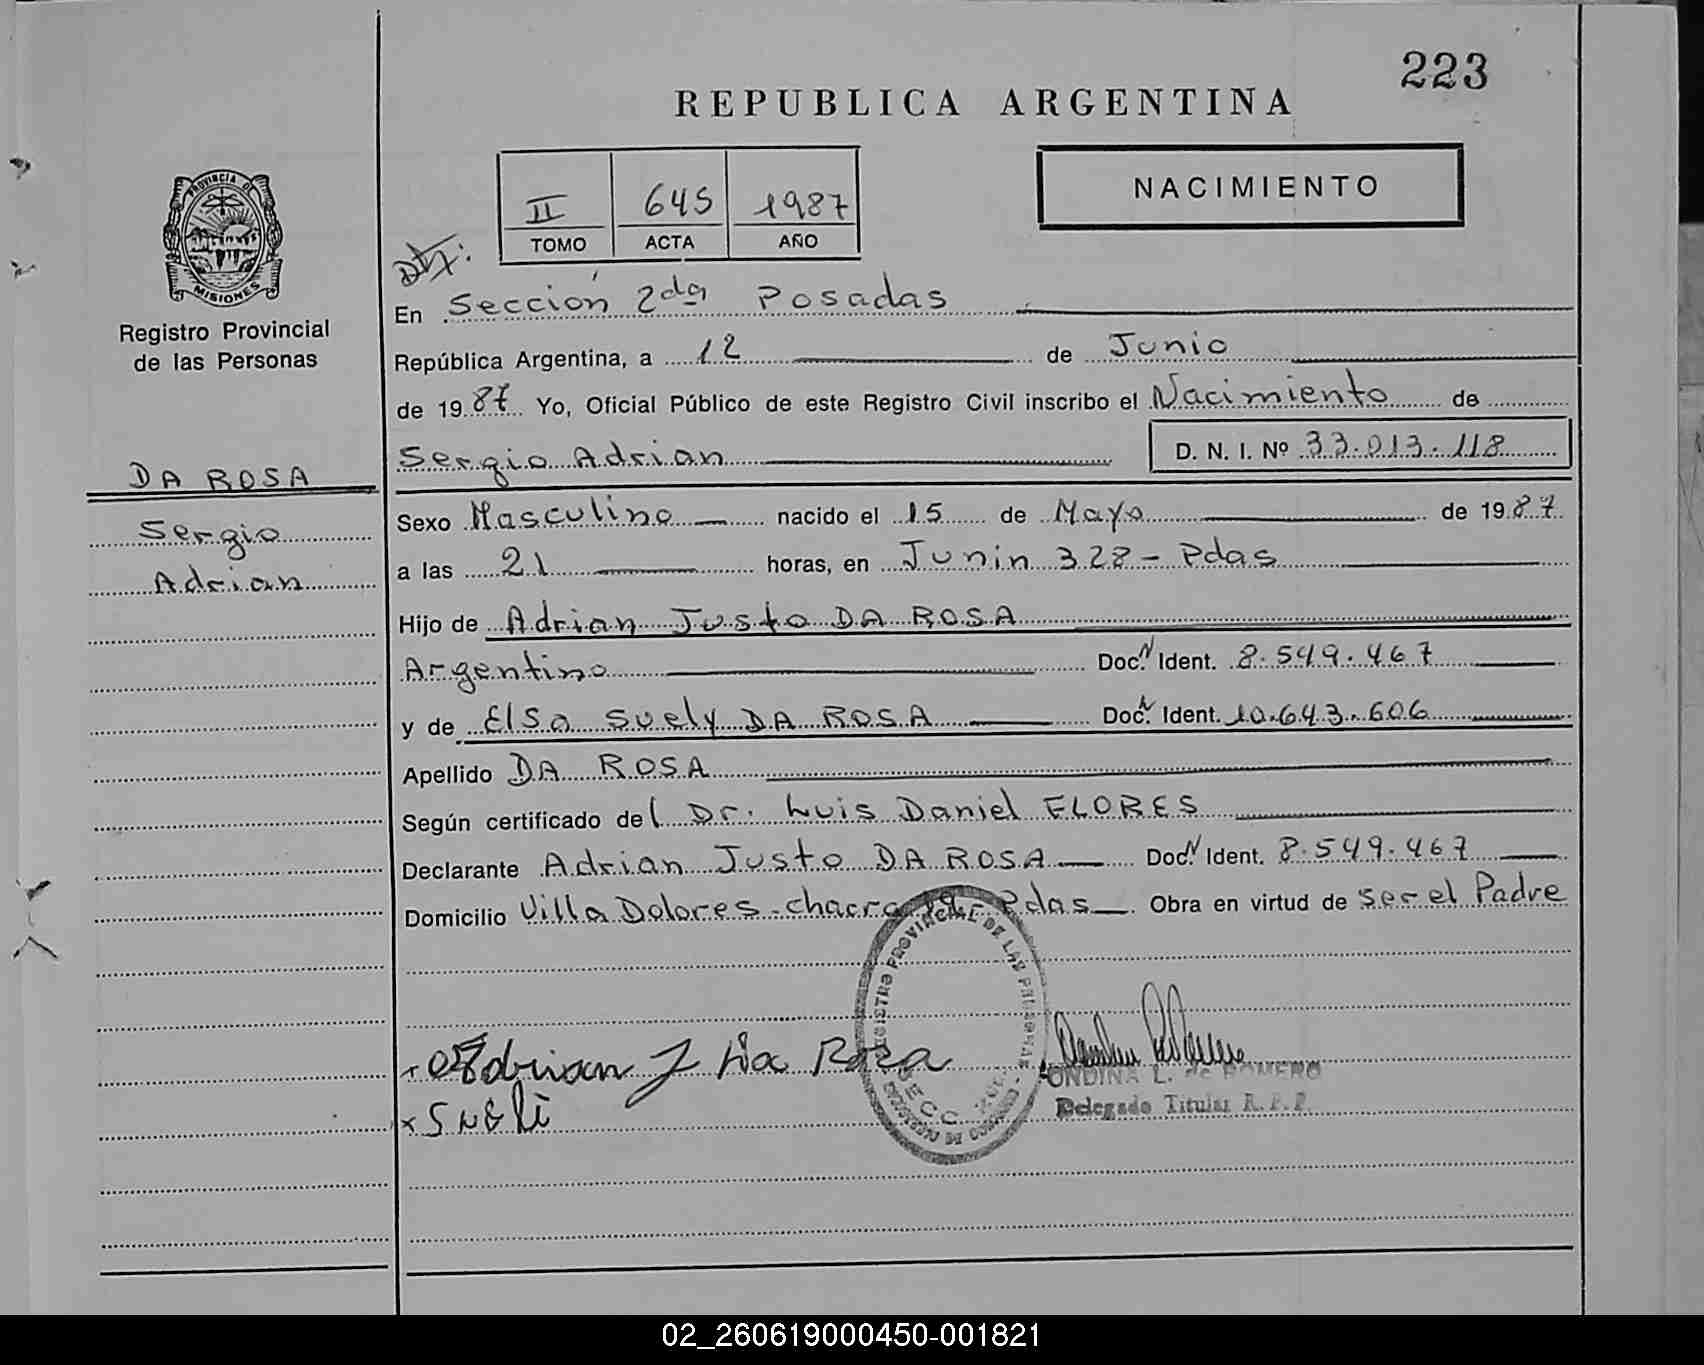 223
REPUBLICA ARGENTINA
II 645 1987
TOMO ACTA AÑO
NACIMIENTO
PROVINCIA DE
MISIONES
Registro Provincial
de las Personas
DA ROSA
Sergio
Adrian
En Sección 2da Posadas
República Argentina, a 12 de Junio
de 1987 Yo, Oficial Público de este Registro Civil inscribo el Nacimiento de
Sergio Adrian D. N. I. Nº 33.013.118
Sexo Masculino nacido el 15 de Mayo de 1987
a las 21 horas, en Junin 328 - Pdas
Hijo de Adrian Justo DA ROSA
Argentino Doc. N Ident. 8.549.467
y de Elsa Suely DA ROSA Doc. N Ident. 10.643.606
Apellido DA ROSA
Según certificado del Dr. Luis Daniel FLORES
Declarante Adrian Justo DA ROSA Doc. N Ident. 8.549.467
Domicilio Villa Dolores - chacra Pdas Obra en virtud de ser el Padre
REGISTRO PROVINCIAL DE LAS PERSONAS
SECC. 2da
Adrian J Da Rosa
x Sueli
ONDINA L. de ROMERO
Delegado Titular R. P. P.
02_260619000450-001821